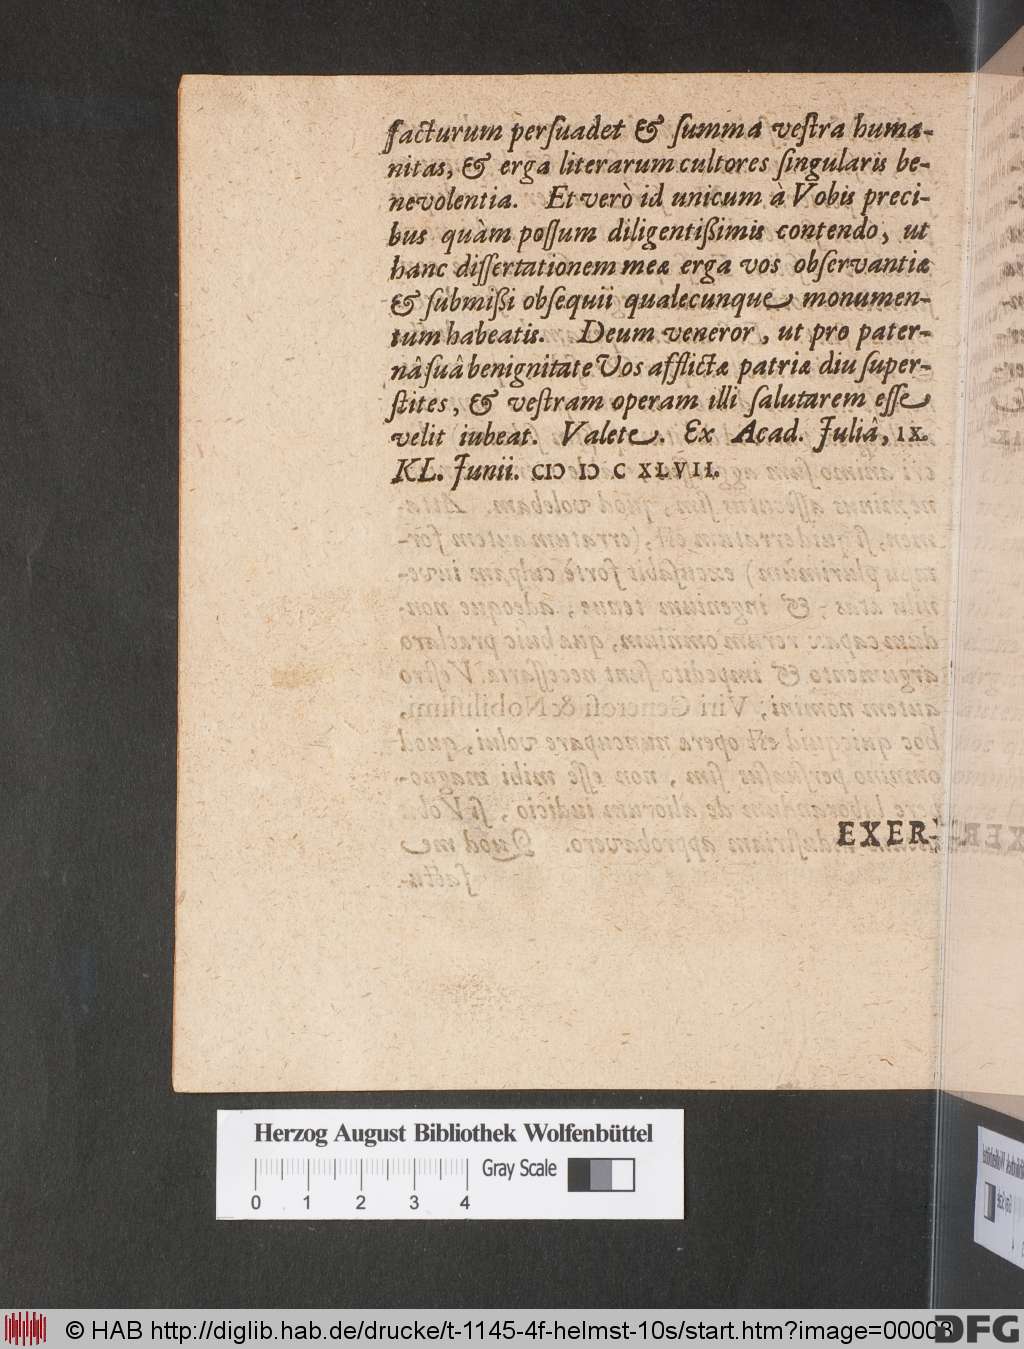 facturum persuadet & summa vestra huma-
nitas, & erga literarum cultores singularis be-
nevolentia. Et verò id unicum à Vobis preci-
bus quàm possum diligentißimis contendo, ut
hanc dissertationem meæ erga vos observantiæ
& submißi obsequii qualecunque monumen-
tum habeatis. Deum veneror, ut pro pater-
nâ suâ benignitate Vos afflictæ patriæ diu super-
stites, & vestram operam illi salutarem esse
velit iubeat. Valete. Ex Acad. Juliâ, IX.
KL. Junii. CIↃ IↃ C XLVII.
EXER-
Herzog August Bibliothek Wolfenbüttel
Gray Scale
0 1 2 3 4
© HAB http://diglib.hab.de/drucke/t-1145-4f-helmst-10s/start.htm?image=00008
DFG